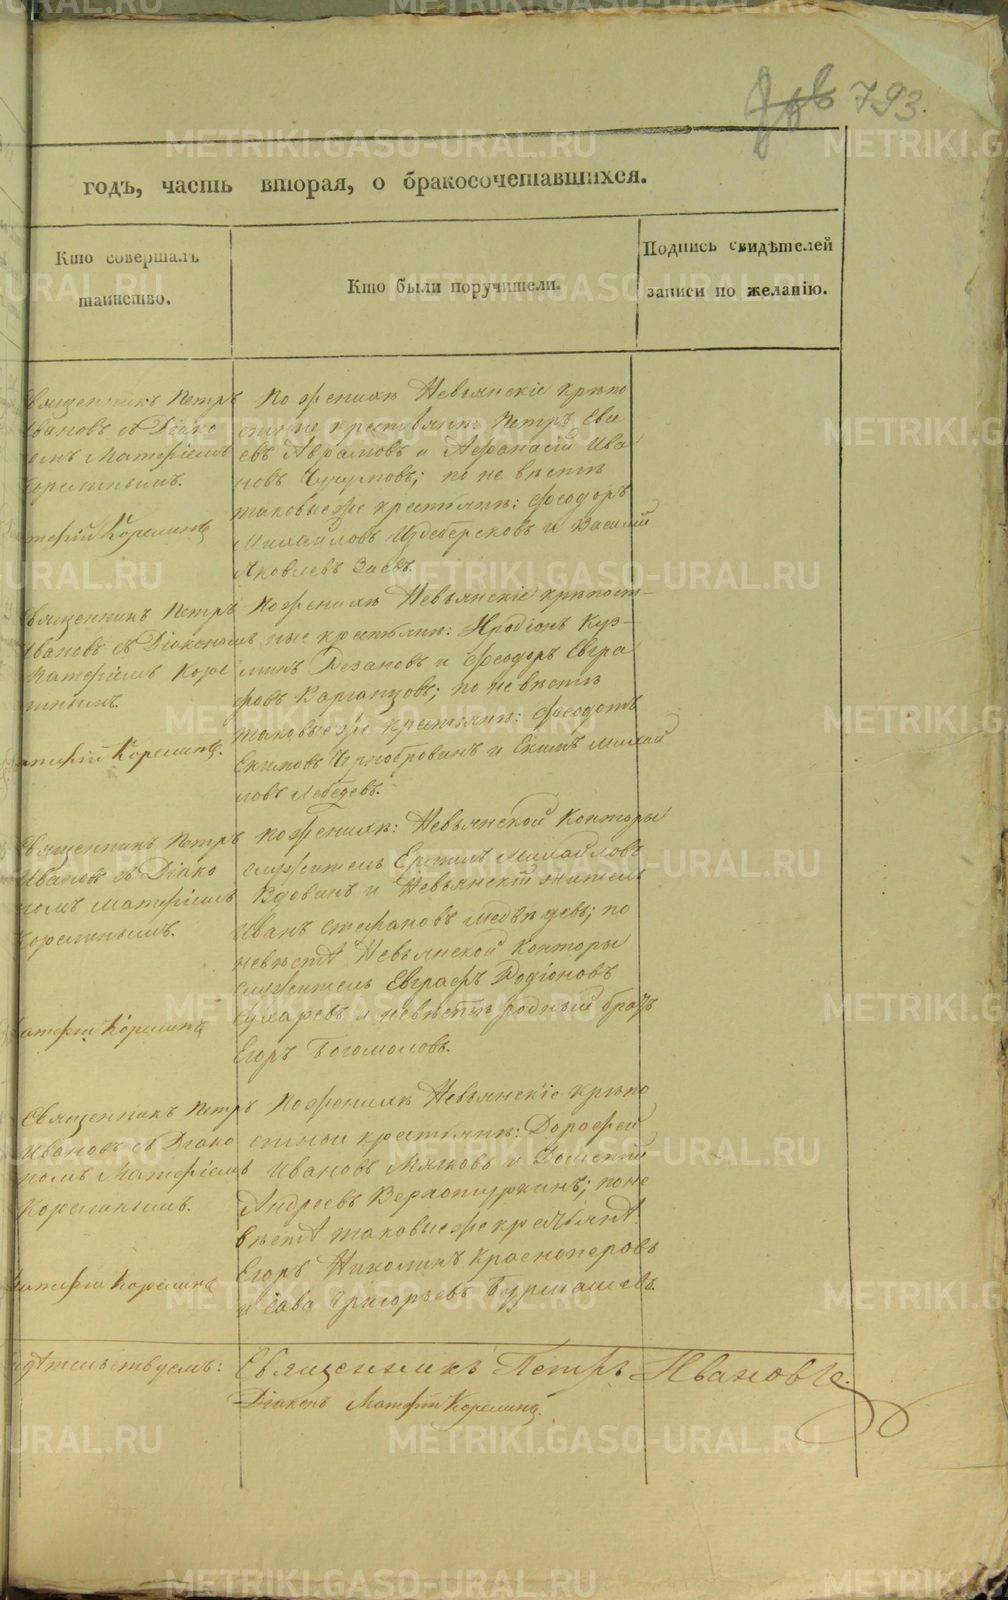 793.
годъ, часть вторая, о бракосочетавшихся.
Кто совершалъ
таинство.
Кто были поручители.
Подпись свидѣтелей
записи по желанію.
Священникъ Петръ
Ивановъ съ Діако
номъ Матфіемъ
Корелинымъ.
Матфій Корелинъ
По женихѣ Невьянскіе крѣпо
стные крестьяне: Петръ
евъ Аврамовъ и Афанасій Ива
новъ; по невѣстѣ
таковые же крестьяне: Феодоръ
Михайловъ и Василій
Яковлевъ
Священникъ Петръ
Ивановъ съ Діакономъ
Матфіемъ Коре
линымъ.
Матфій Корелинъ.
По женихѣ Невьянскіе крѣпост-
ные крестьяне: Иродіонъ Куз-
минъ и Феодоръ Евгра
фовъ; по невѣстѣ
таковые же крестьяне: Феодотъ
Екимовъ Чернобровинъ и Екимъ Михай
ловъ Лебедевъ.
Священникъ Петръ
Ивановъ съ Діако
номъ Матфіемъ
Корелинымъ.
Матфій Корелинъ
По женихѣ: Невьянской Конторы
служитель Ермилъ Михайловъ
Вдовинъ и Невьянскій житель
Иванъ Стефановъ Медвѣдевъ; по
невѣстѣ Невьянской Конторы
служитель Евграфъ Родіоновъ
Сухаревъ и невѣсты родный братъ
Егоръ Богомоловъ.
Священникъ Петръ
Ивановъ съ Діако
номъ Матфіемъ
Корелинымъ.
Матфій Корелинъ
По женихѣ Невьянскіе крѣпо
стные крестьяне: Дорофей
Ивановъ Мягковъ и
Андреевъ; по не
вѣстѣ таковые же крестьяне:
Егоръ Никитинъ Красноперовъ
и Сава Григорьевъ Бурмашевъ.
Священникъ Петръ Ивановъ.
Діаконъ Матфій Корелинъ.
METRIKI.GASO-URAL.RU